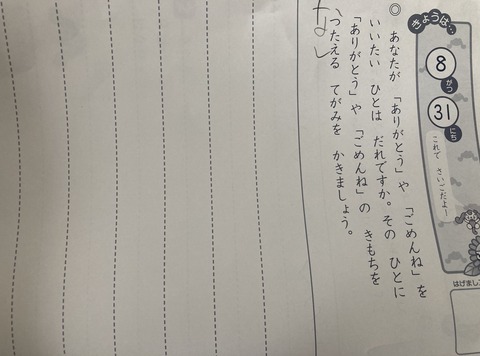 きょうは、
8がつ
31にち
これで さいごだよー
はげまし
◎ あなたが 「ありがとう」や 「ごめんね」を
いいたい ひとは だれですか。その ひとに
「ありがとう」や 「ごめんね」の きもちを
つたえる てがみを かきましょう。
なし